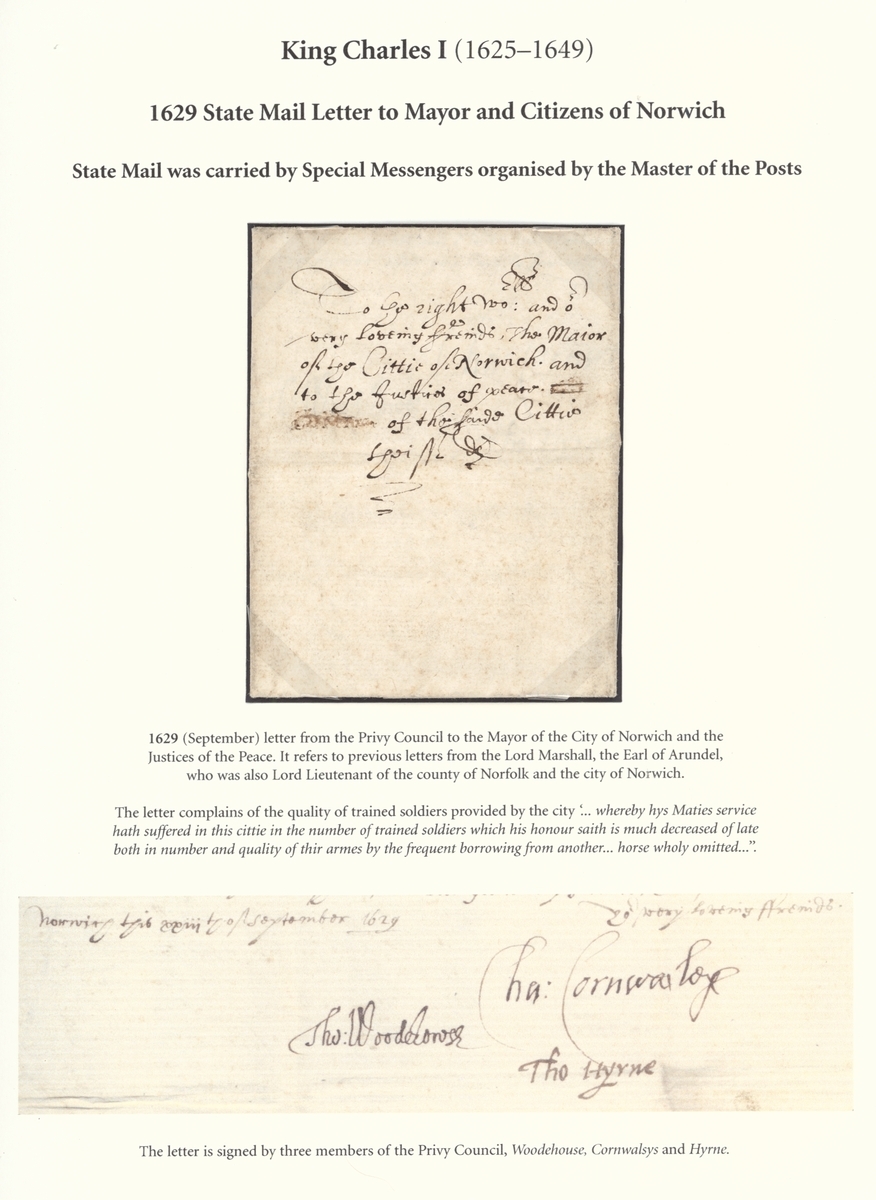 King Charles I (1625–1649)
1629 State Mail Letter to Mayor and Citizens of Norwich
State Mail was carried by Special Messengers organised by the Master of the Posts
To the right Wo: and or
very loveing ffreinds, The Maior
of the Cittie of Norwich. and
to the Justices of peace.
of the saide Cittie
1629 (September) letter from the Privy Council to the Mayor of the City of Norwich and the
Justices of the Peace. It refers to previous letters from the Lord Marshall, the Earl of Arundel,
who was also Lord Lieutenant of the county of Norfolk and the city of Norwich.
The letter complains of the quality of trained soldiers provided by the city ‘... whereby hys Maties service
hath suffered in this cittie in the number of trained soldiers which his honour saith is much decreased of late
both in number and quality of thir armes by the frequent borrowing from another... horse wholy omitted...”.
Norwich this xxiiith of September 1629
Yor very loveing ffreinds.
Cha: Cornwaleys
Tho: Woodehowse
Tho Hyrne
The letter is signed by three members of the Privy Council, Woodehouse, Cornwalsys and Hyrne.